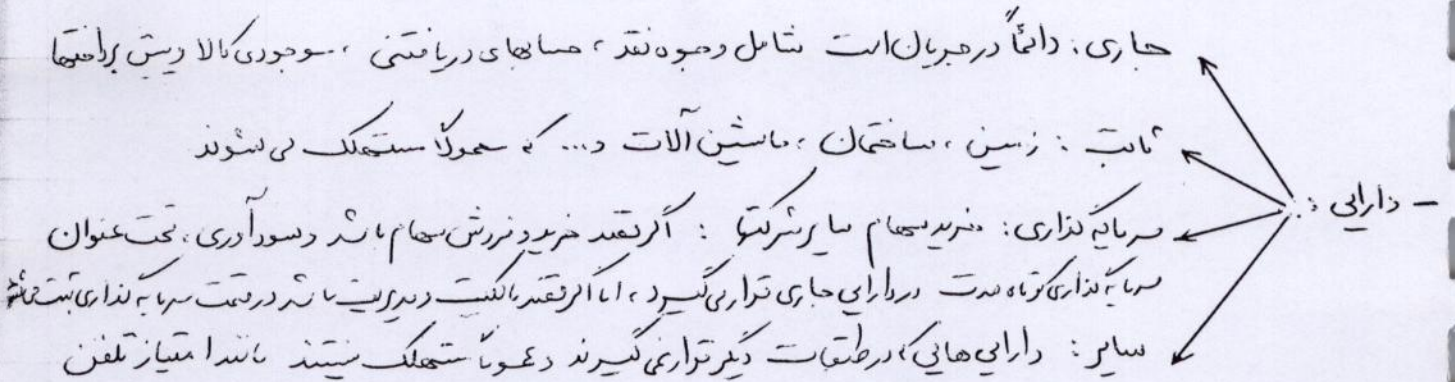 جاری: دائماً در جریان است شامل وجوه نقد، حسابهای دریافتنی، موجودی کالا و پیش پرداختها
ثابت: زمین، ساختمان، ماشین آلات و... که معمولاً مستهلک می شوند
- دارایی:
سرمایه گذاری: خرید سهام سایر شرکتها: اگر قصد خرید و فروش سهام باشد و سودآوری، تحت عنوان
سرمایه گذاری کوتاه مدت در دارایی جاری قرار می گیرد، اما اگر قصد مالکیت و مدیریت باشد در قسمت سرمایه گذاری ثبت می شود
سایر: دارایی هایی که در طبقات دیگر قرار نمی گیرند و عموماً مستهلک نیستند مانند امتیاز تلفن